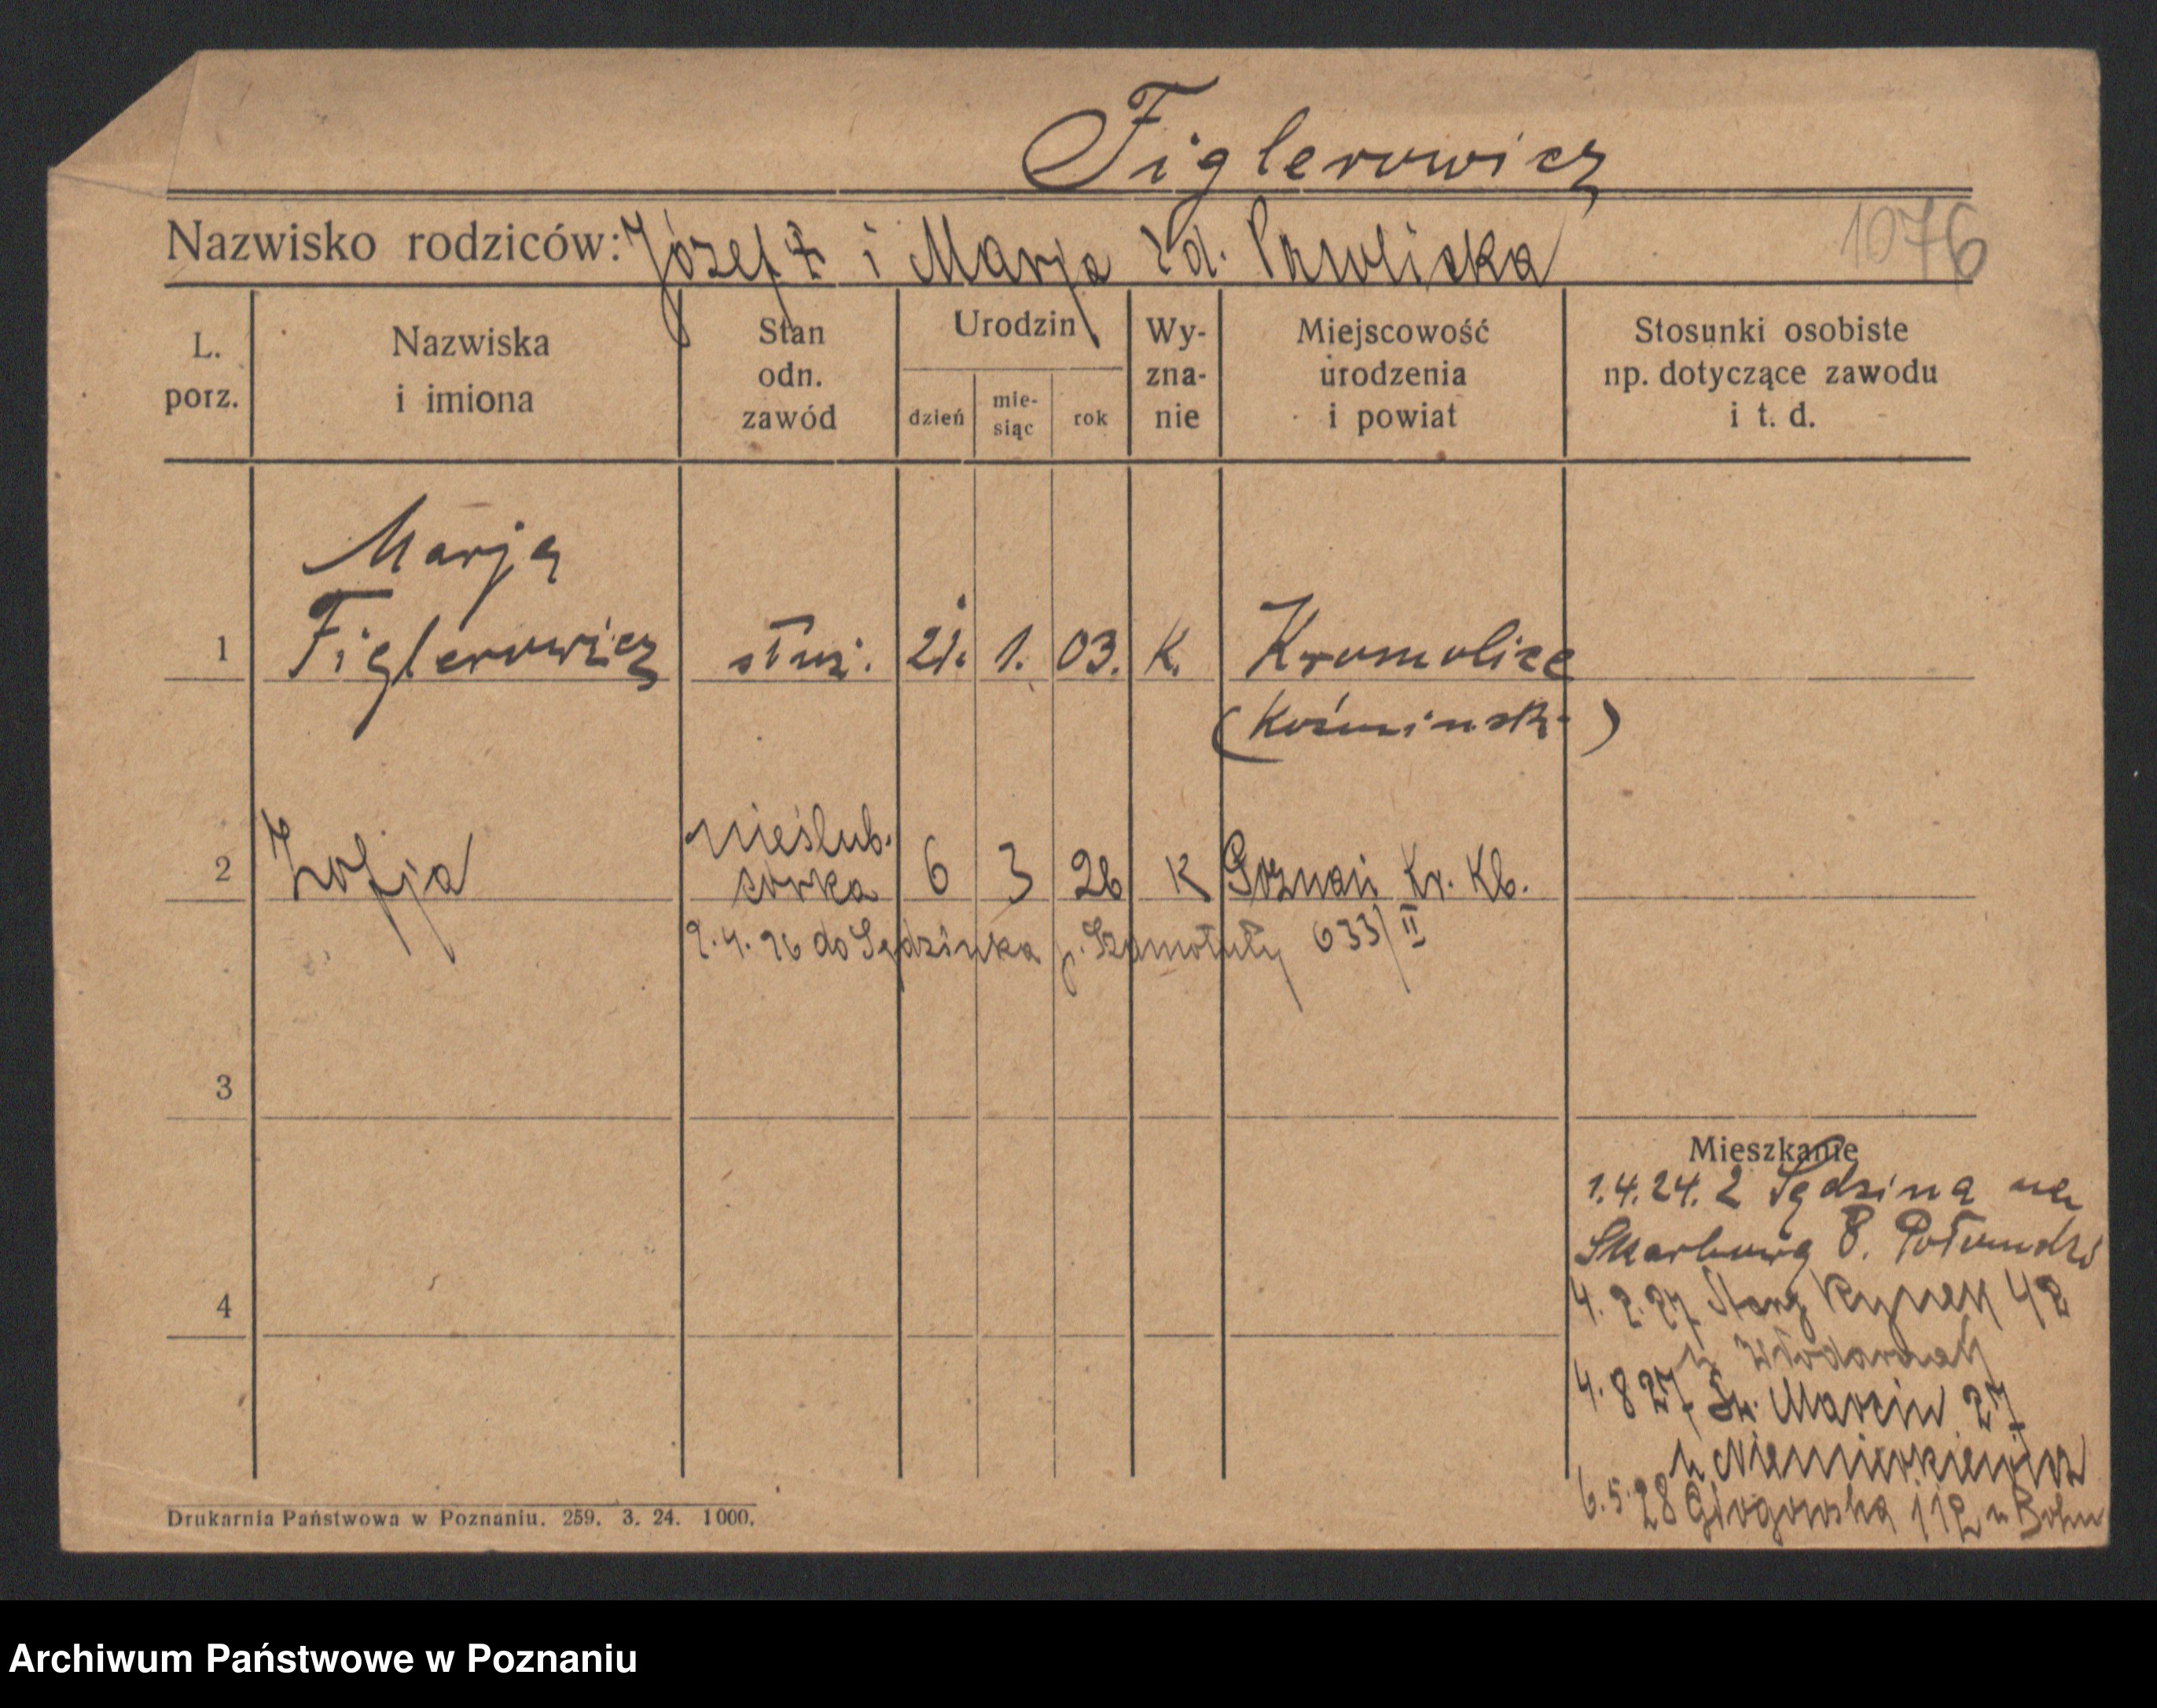 Figlerowicz
Nazwisko rodziców: Józef i Marja zd. Pawlicka
1076
L. porz.
Nazwiska i imiona
Stan odn. zawód
Urodzin
dzień
mie-
siąc
rok
Wy-
zna-
nie
Miejscowość
urodzenia
i powiat
Stosunki osobiste
np. dotyczące zawodu
i t. d.
Marja
1 Figlerowicz służ. 21. 1. 03. K. Kromolice
(Koźmiński)
nieślub.
2 Zofja córka 6 3 26 K Poznań Kr. Kb.
2.4.26 do Sędzinka p. Szamotuły 633/II
3
Mieszkanie
1.4.24. z Sędzina na
Skarbowa 8.
4
4.2.27 Stary Rynek 42
u Włodarczak
4.8 27 Św. Marcin 27
u Niemierkiewicz
6.5.28 Głogowska 112 u Bohn
Drukarnia Państwowa w Poznaniu. 259. 3. 24. 1000.
Archiwum Państwowe w Poznaniu